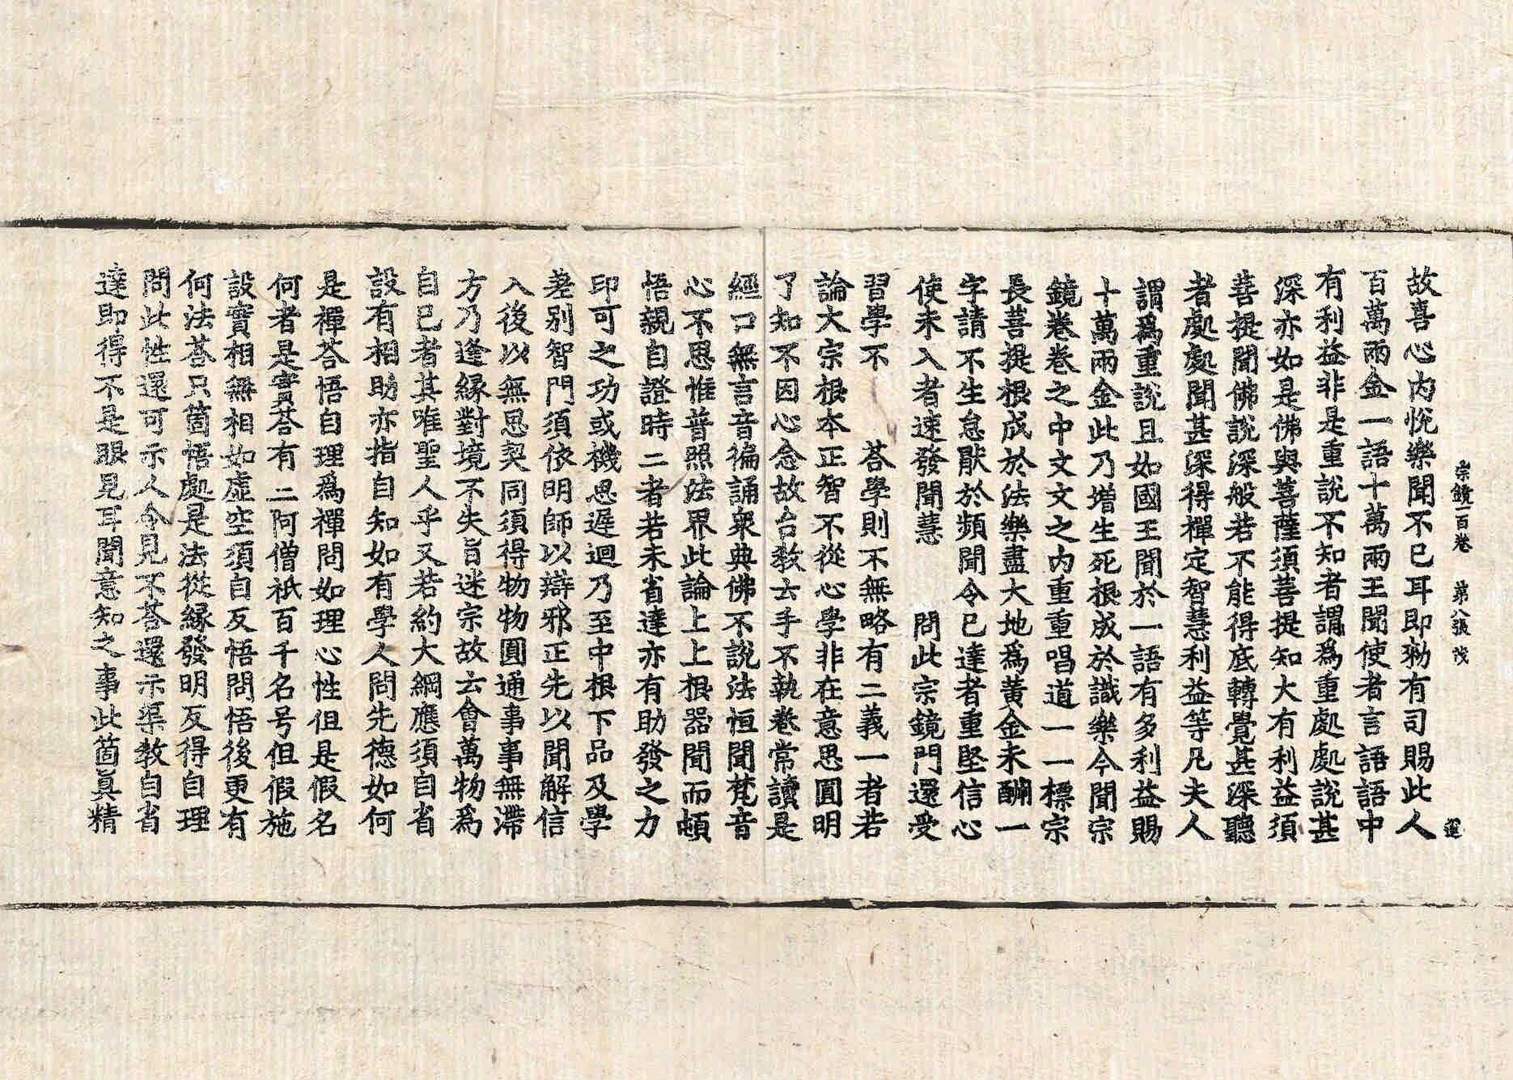 宗鏡一百卷 第八張 茂
故喜心內悅樂聞不已耳即勑有司賜此人
百萬兩金一語十萬兩王聞使者言語語中
有利益非是重說不知者謂爲重處處說甚
深亦如是佛與菩薩須菩提知大有利益須
菩提聞佛說深般若不能得底轉覺甚深聽
者處處聞甚深得禪定智慧利益等凡夫人
謂爲重說且如國王聞於一語有多利益賜
十萬兩金此乃增生死根成於識樂今聞宗
鏡卷卷之中文文之內重重唱道一一標宗
長菩提根成於法樂盡大地爲黃金未酬一
字請不生怠猒於頻聞令已達者重堅信心
使未入者速發聞慧 問此宗鏡門還受
習學不 荅學則不無略有二義一者若
論大宗根本正智不從心學非在意思圓明
了知不因心念故台敎云手不執卷常讀是
經口無言音徧誦衆典佛不說法恒聞梵音
心不思惟普照法界此論上上根器聞而頓
悟親自證時二者若未省達亦有助發之力
印可之功或機思遲迴乃至中根下品及學
差別智門須依明師以辯邪正先以聞解信
入後以無思契同須得物物圓通事事無滯
方乃逢緣對境不失旨迷宗故云會萬物爲
自己者其唯聖人乎又若約大綱應須自省
設有相助亦指自知如有學人問先德如何
是禪荅悟自理爲禪問如理心性但是假名
何者是實荅有二阿僧祇百千名号但假施
設實相無相如虛空須自反悟問悟後更有
何法荅只箇悟處是法從緣發明反得自理
問此性還可示人令見不荅還示渠敎自省
達即得不是眼見耳聞意知之事此箇眞精